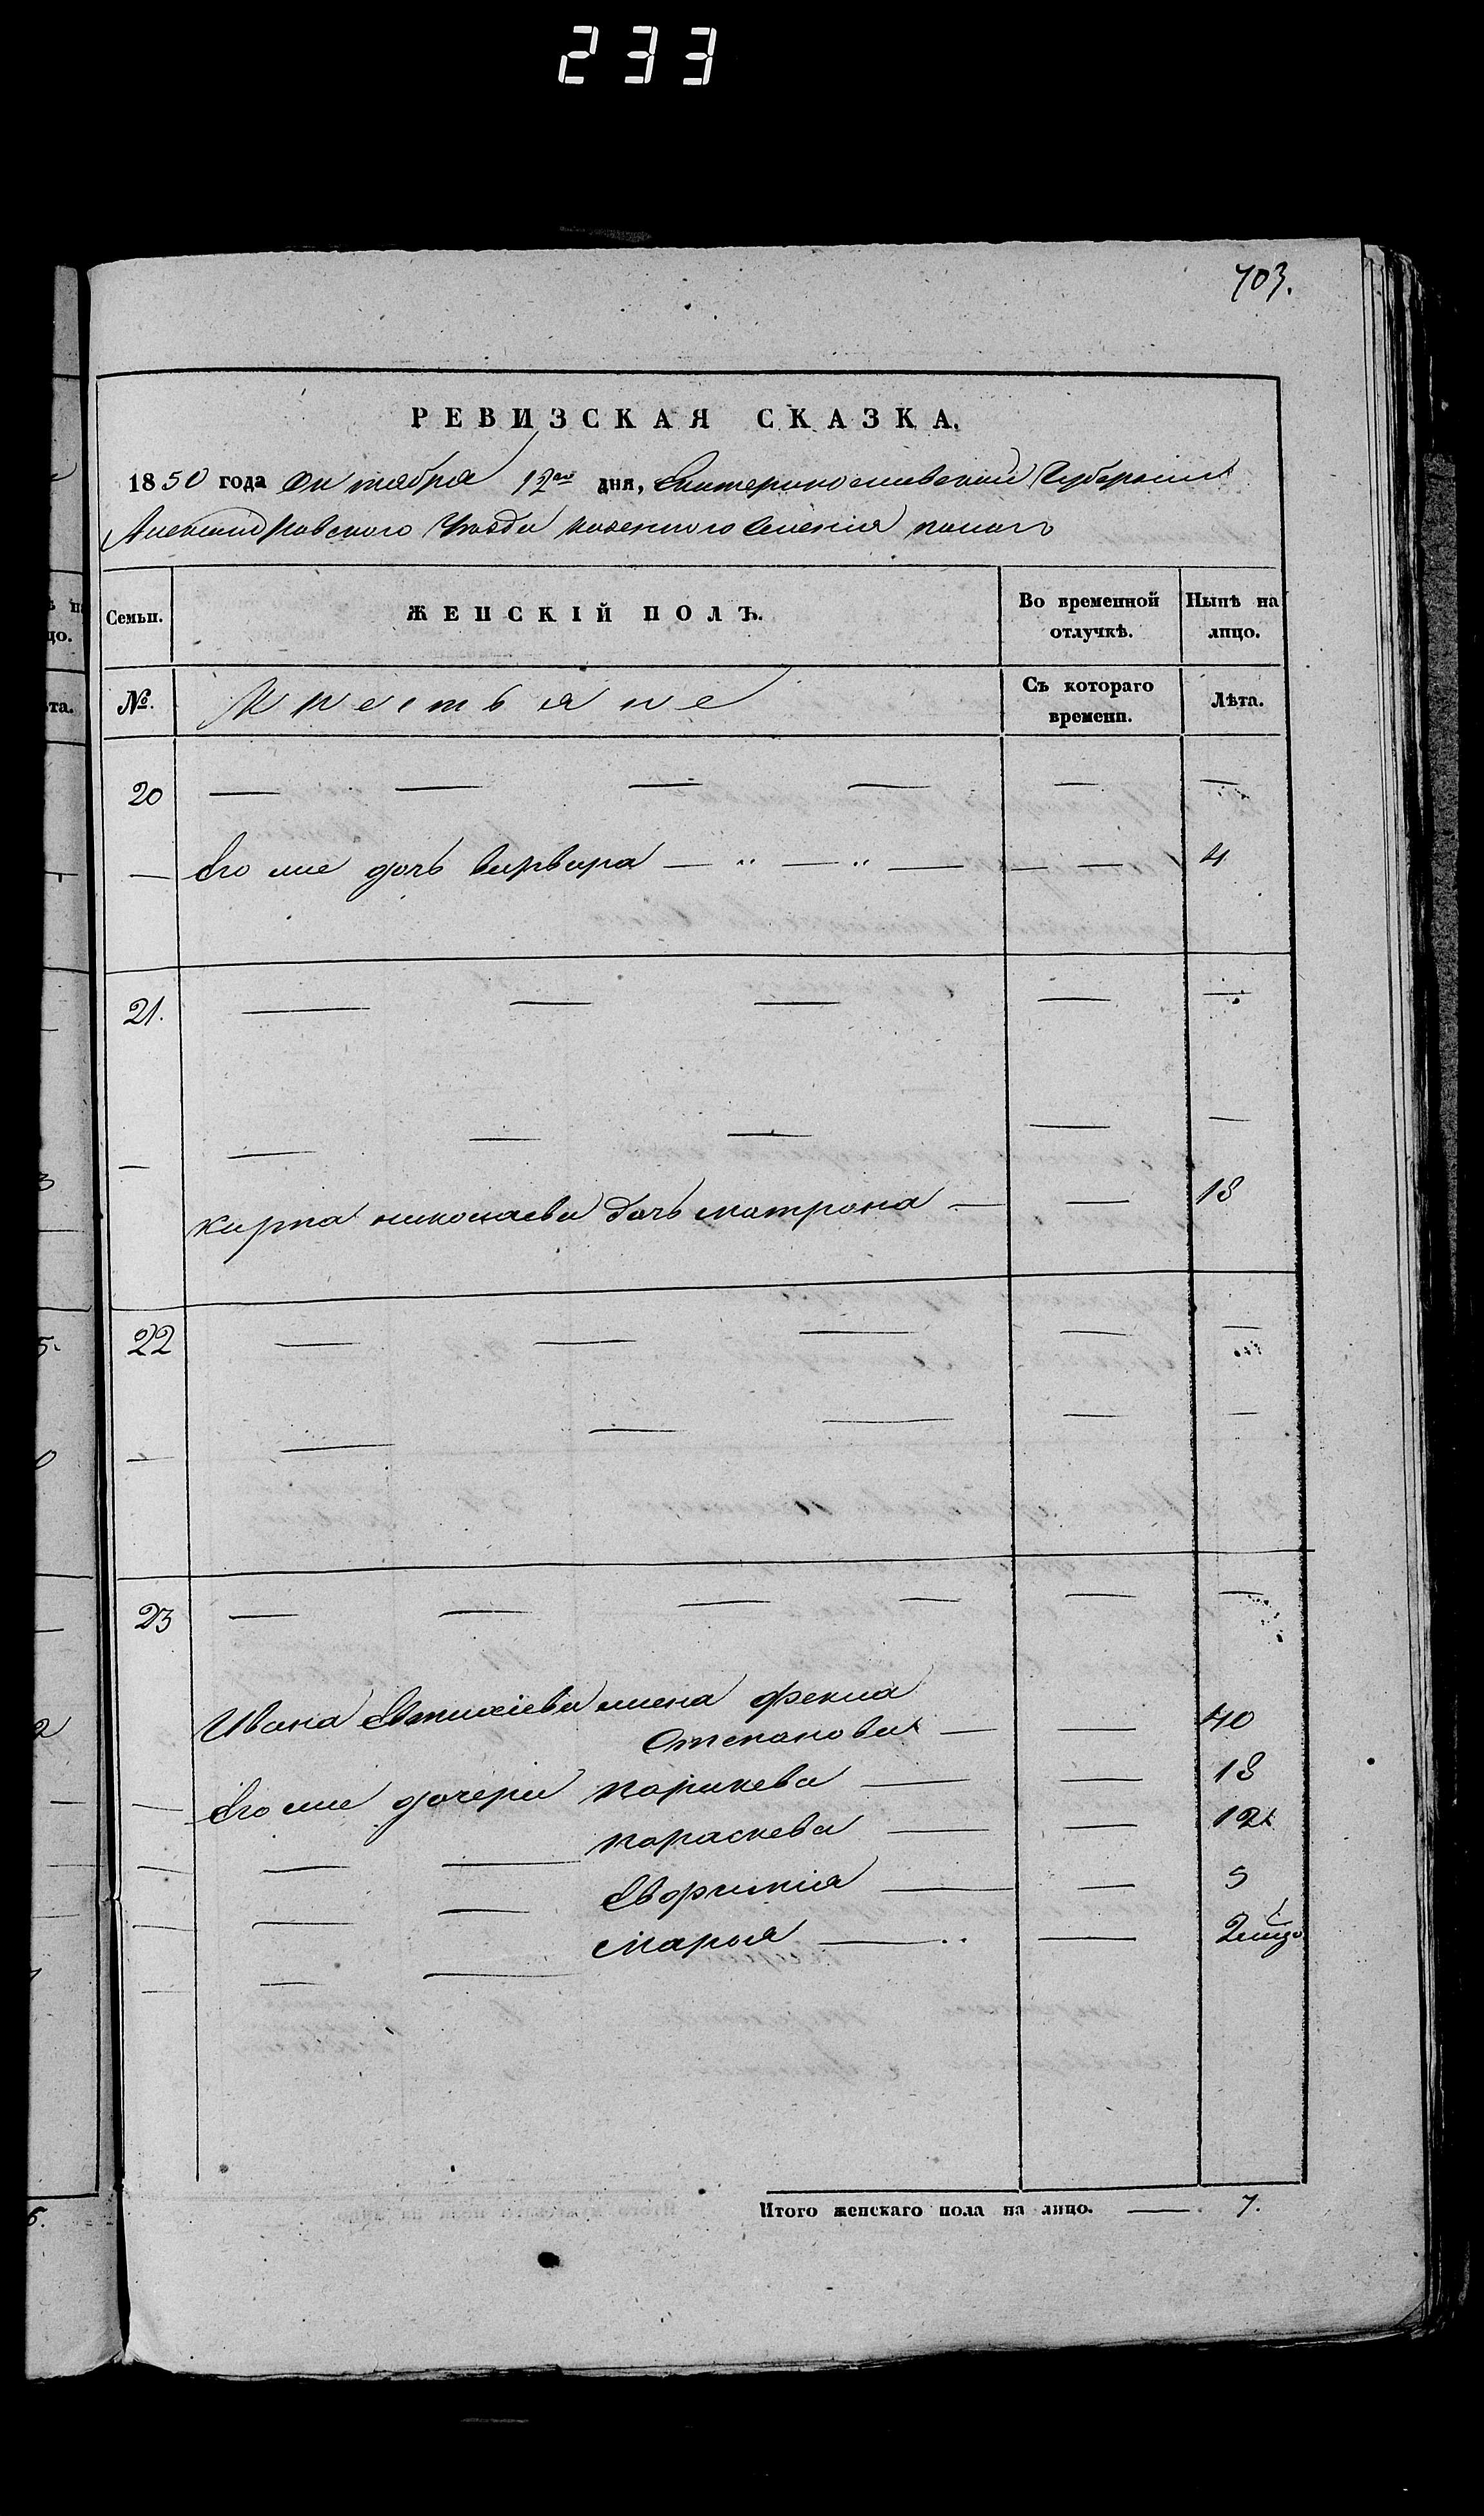 233
703.
РЕВИЗСКАЯ СКАЗКА.
1850 года Октября 12го дня, Екатеринославской Губернии
Александровского Уезда казенного Селения
Семьи. ЖЕНСКІЙ ПОЛЪ. Во временной отлучкѣ. Нынѣ на лицо.
№. Крестьяне Съ котораго времени. Лѣта.
20 — — — — — —
— Его же дочь варвара — „ — „ — — — 4
21. — — — — —
— — — — — —
Карпа николаева дочь матрона — — 18
22 — — — — —
— — — — — —
23 — — — — — —
Ивана Евтихіева жена фекла
Степанова — — 40
— Его же дочери параскева — — 18
— — — параскева — — 12
— — — Евфимія — — 5
— — — Марья — — 2
Итого женскаго пола на лицо. — 7.